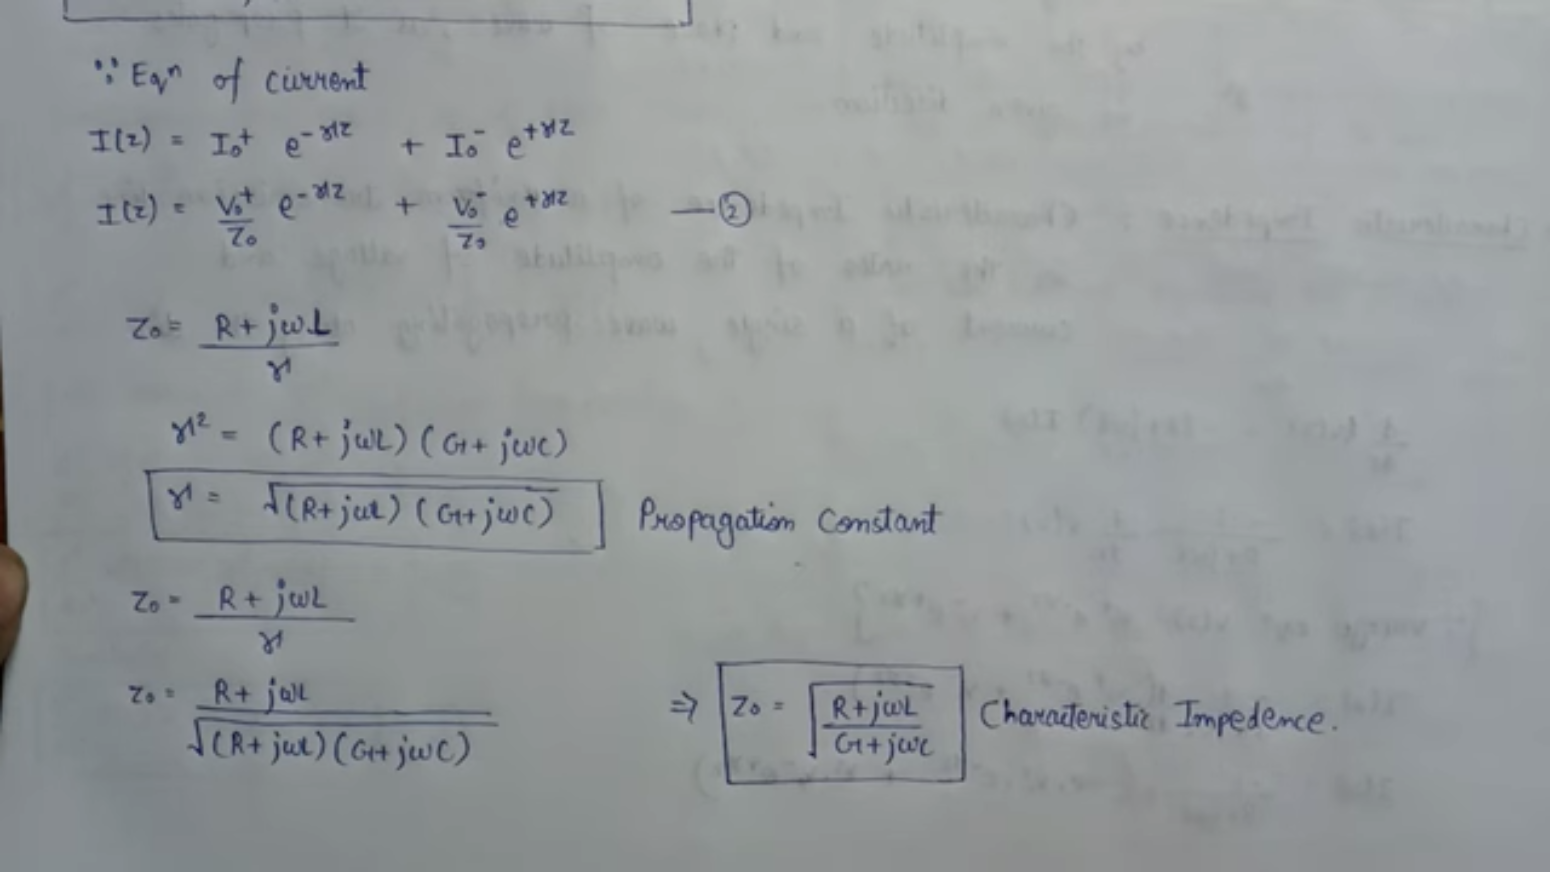 ∵ Eqⁿ of current
I(z) = I₀⁺ e^{-γz} + I₀⁻ e^{+γz}
I(z) = V₀⁺/Z₀ e^{-γz} + V₀⁻/Z₀ e^{+γz} —②
Z₀ = (R + jωL)/γ
γ² = (R + jωL) (G + jωC)
γ = √((R + jωL) (G + jωC)) Propagation Constant
Z₀ = (R + jωL)/γ
Z₀ = (R + jωL)/√((R + jωL) (G + jωC)) ⇒ Z₀ = √((R + jωL)/(G + jωC)) Characteristic Impedence.